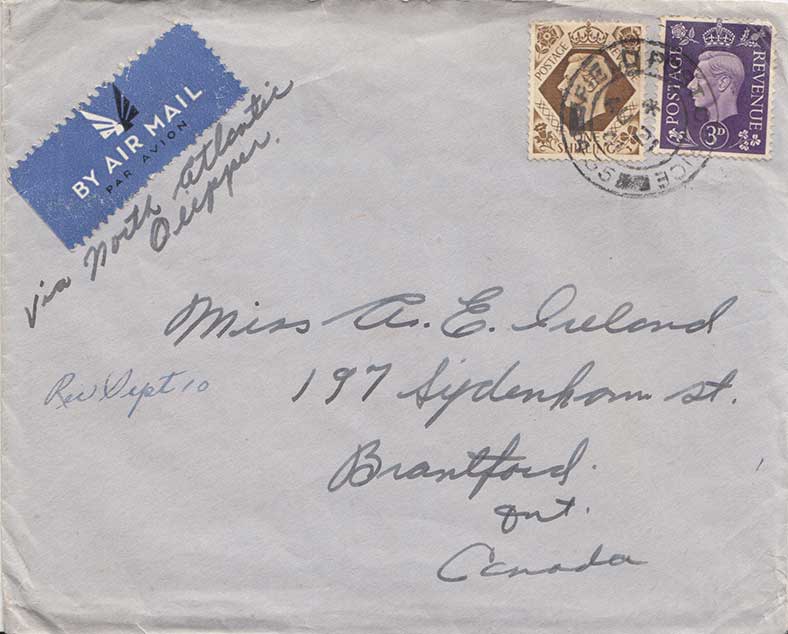 BY AIR MAIL
PAR AVION
via North Atlantic
Clipper.
POSTAGE
ONE
SHILLING
POSTAGE
REVENUE
3D
Miss A. E. Ireland
197 Sydenham St.
Rec Sept 10
Brantford.
Ont.
Canada